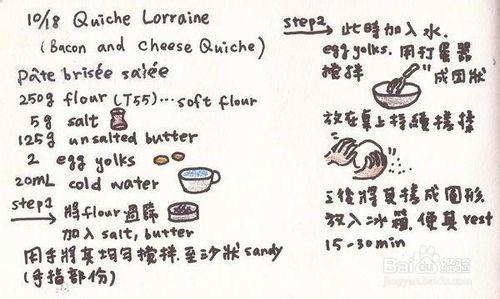 10/18 Quiche Lorraine
(Bacon and Cheese Quiche)
Pâte brisée salée
250g flour (T55)... soft flour
5g salt
125g unsalted butter
2 egg yolks
20mL cold water
step1 將flour過篩
加入 salt, butter
用手將其均勻攪拌.至沙狀 sandy
(手指部份)
step2 此時加入水.
egg yolks. 用打蛋器
攪拌 成團狀
放在桌上持續搓揉
後將其揉成圓形
放入冰箱.使其rest
15-30min
Baidu经验